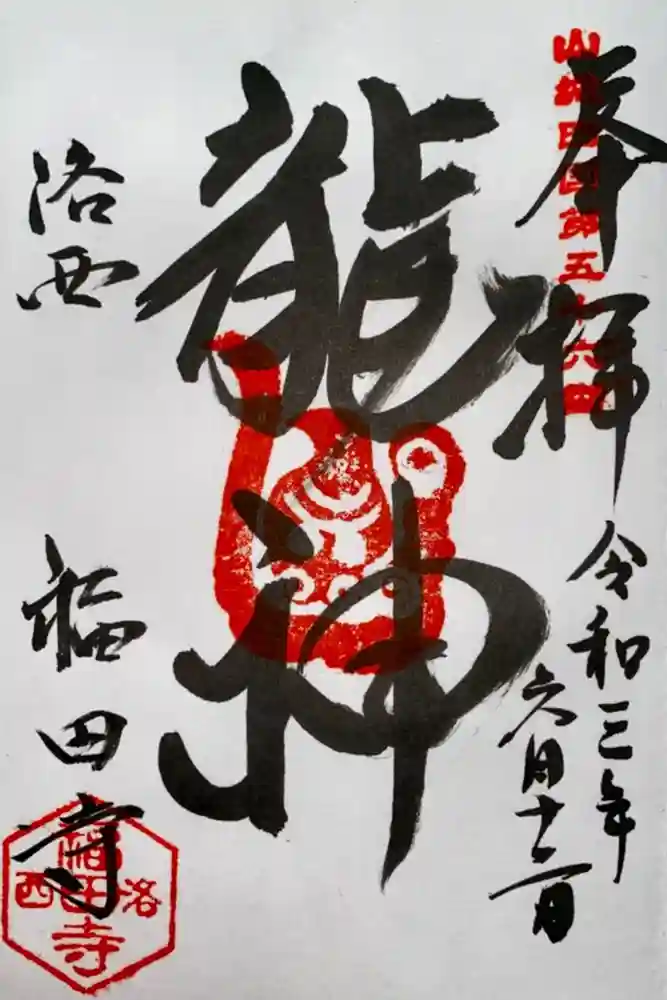 奉拝
国第五十六
令和三年
六月十二日
龍神
洛西
福田寺
洛西
福田寺